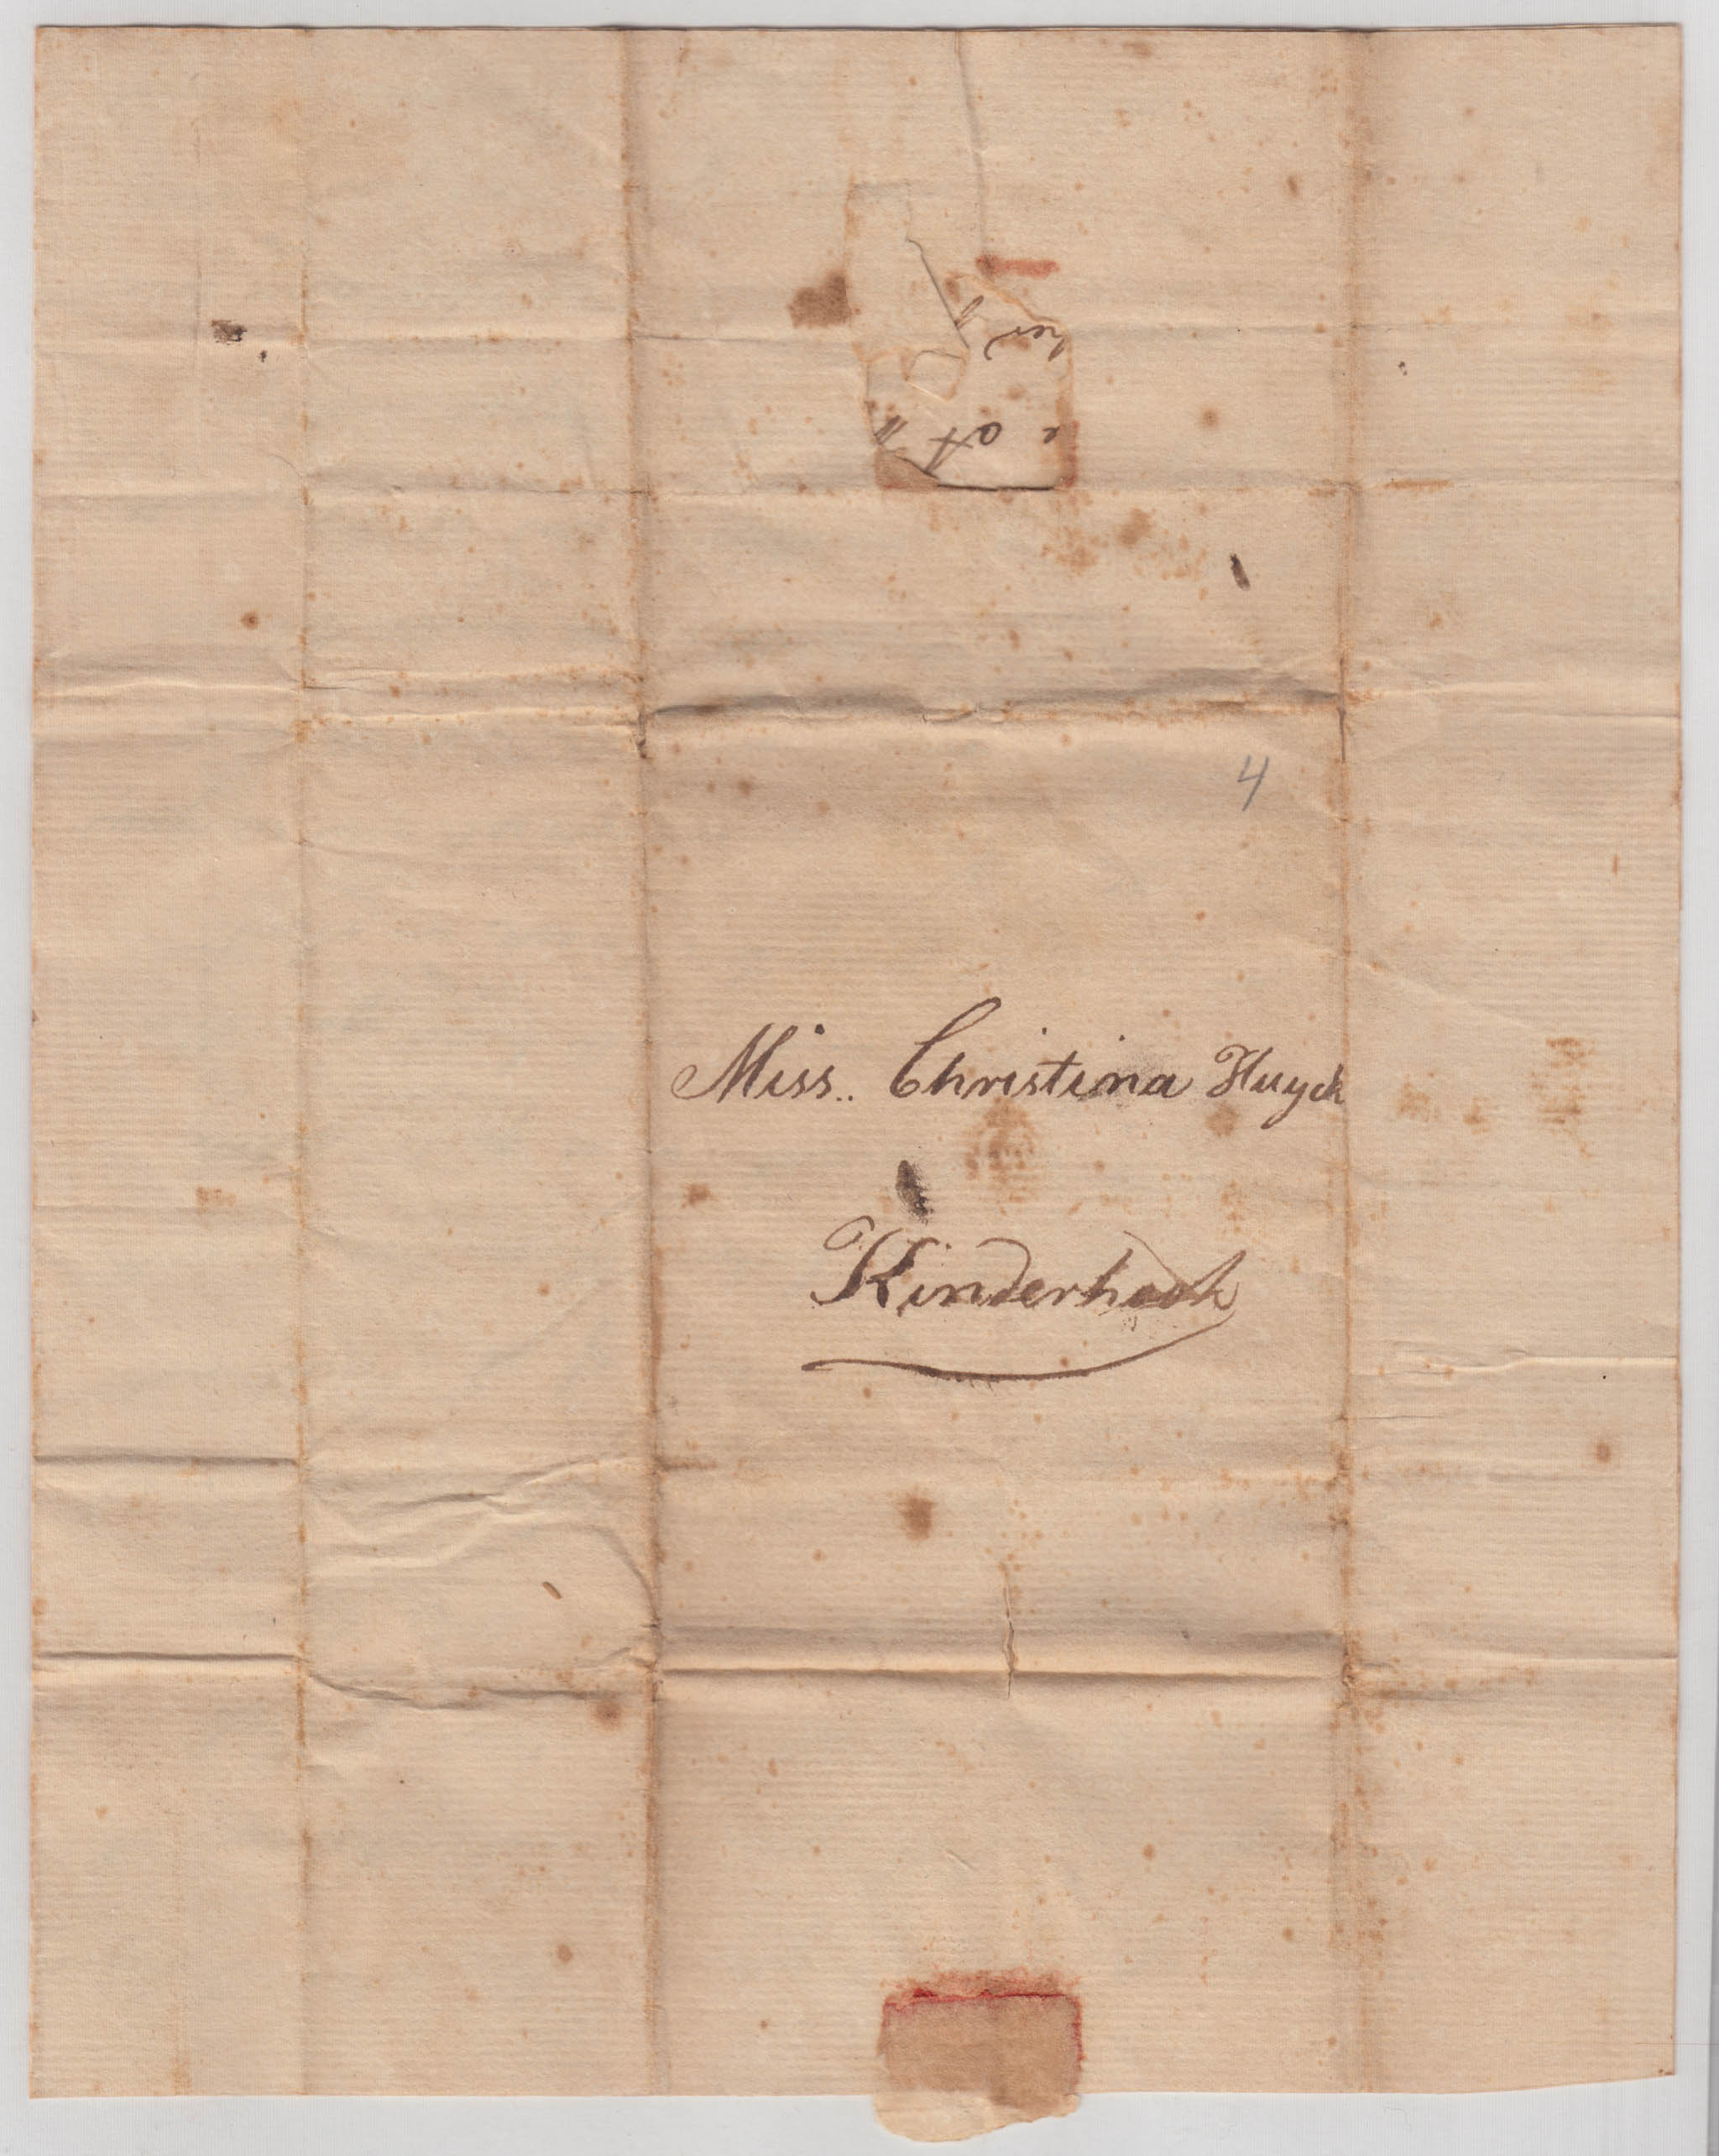 4
Miss.. Christina Huyck
Kinderhook